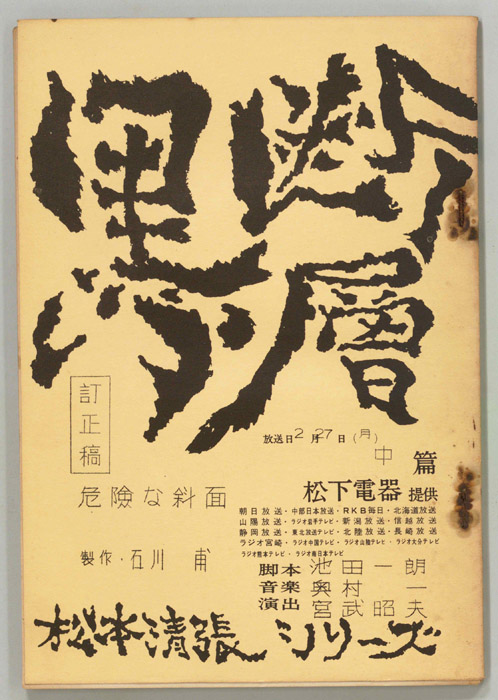 黒い
断層
訂正稿
放送日2月27日(月)
中篇
危險な斜面
松下電器 提供
朝日放送・中部日本放送・RKB毎日・北海道放送
山陽放送・ラジオ岩手テレビ・新潟放送・信越放送
静岡放送・東北放送テレビ・北陸放送・長崎放送
ラジオ宮崎・ラジオ中国テレビ・ラジオ山陰テレビ・ラジオ大分テレビ
ラジオ熊本テレビ・ラジオ南日本テレビ
製作・石川 甫
脚本 池田一朗
音楽 奥村 一
演出 宮武昭夫
松本清張シリーズ